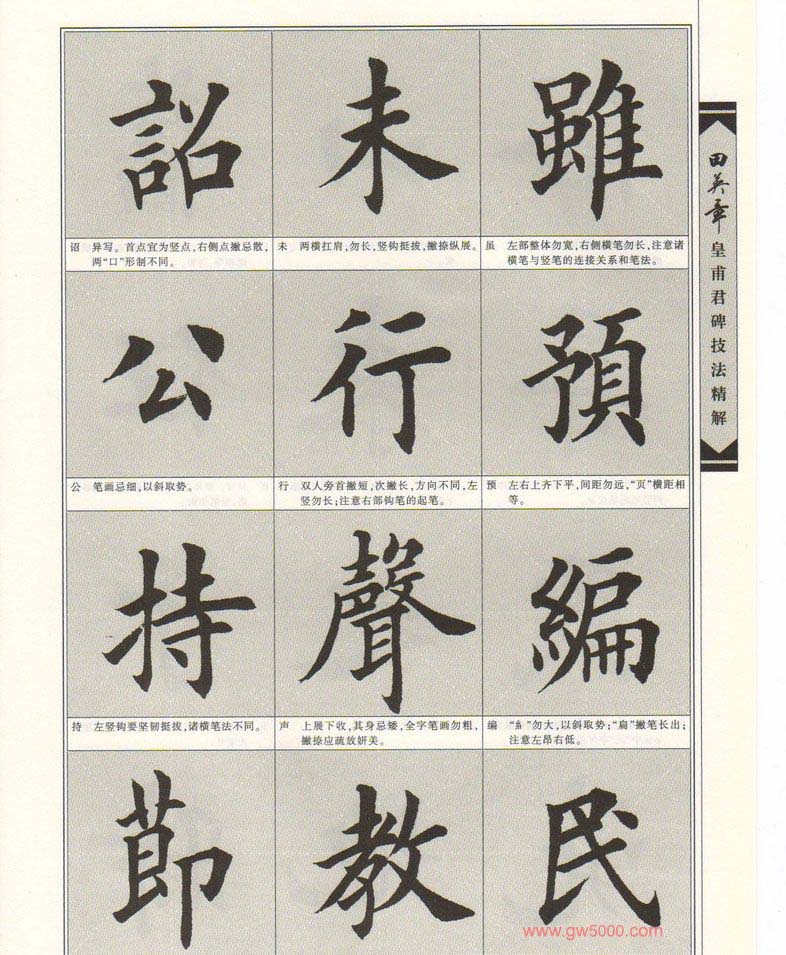 詔 未 雖
诏 异写。首点宜为竖点,右侧点撇忌散,
两“口”形制不同。
未 两横扛肩,勿长,竖钩挺拔,撇捺纵展。
虽 左部整体勿宽,右侧横笔勿长,注意诸
横笔与竖笔的连接关系和笔法。
公 行 預
公 笔画忌细,以斜取势。
行 双人旁首撇短,次撇长,方向不同,左
竖勿长;注意右部钩笔的起笔。
预 左右上齐下平,间距勿远,“页”横距相
等。
持 聲 編
持 左竖钩要坚韧挺拔,诸横笔法不同。
声 上展下收,其身忌矮,全字笔画勿粗,
撇捺应疏放妍美。
编 “糹”勿大,以斜取势;“扁”撇笔长出;
注意左昂右低。
節 教 民
田英章皇甫君碑技法精解
www.gw5000.com